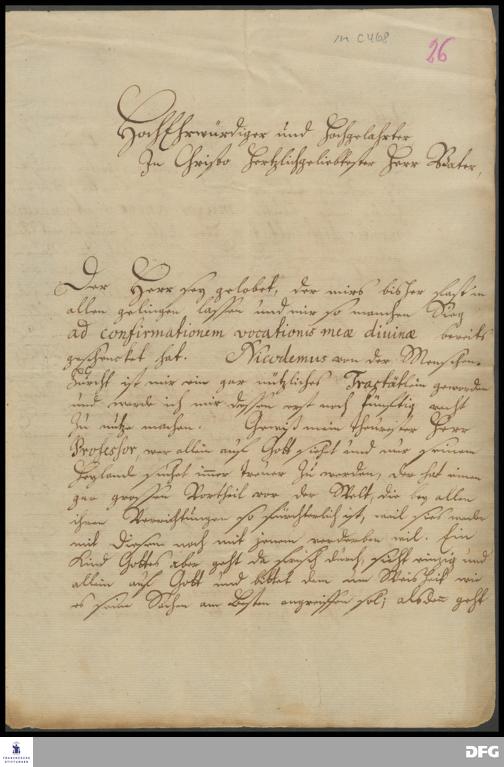 m C 468
26
HochEhrwürdiger und Hochgelahrter
In Christo Hertzlichgeliebtester Herr Vater,
Der Herr sey gelobet, der mirs bisher fast in
allen gelingen lassen und mir so manchen Sieg
ad confirmationem vocationis meæ divinæ bereits
geschencket hat. Nicodemus von der Menschen-
Furcht ist mir ein gar nützliches Tractätlein geworden
und werde ich mir dessen erst noch künfftig recht
zu nütze machen. Gewiß mein theurester Herr
Professor, wer allein auf Gott sieht und nur seinem
Heylande suchet immer treuer zu werden, der hat einen
gar grossen Vortheil vor der Welt, die bey allen
ihren Verrichtungen so fürchterlich ist, weil sies weder
mit diesem noch mit jenem verderben wil. Ein
Kind Gottes aber geht da frisch durch, sieht einzig und
allein auf Gott und bittet den um Weisheit wie
es seine Sachen am Besten angreiffen sol; alsdenn geht
FRANCKESCHE STIFTUNGEN
DFG